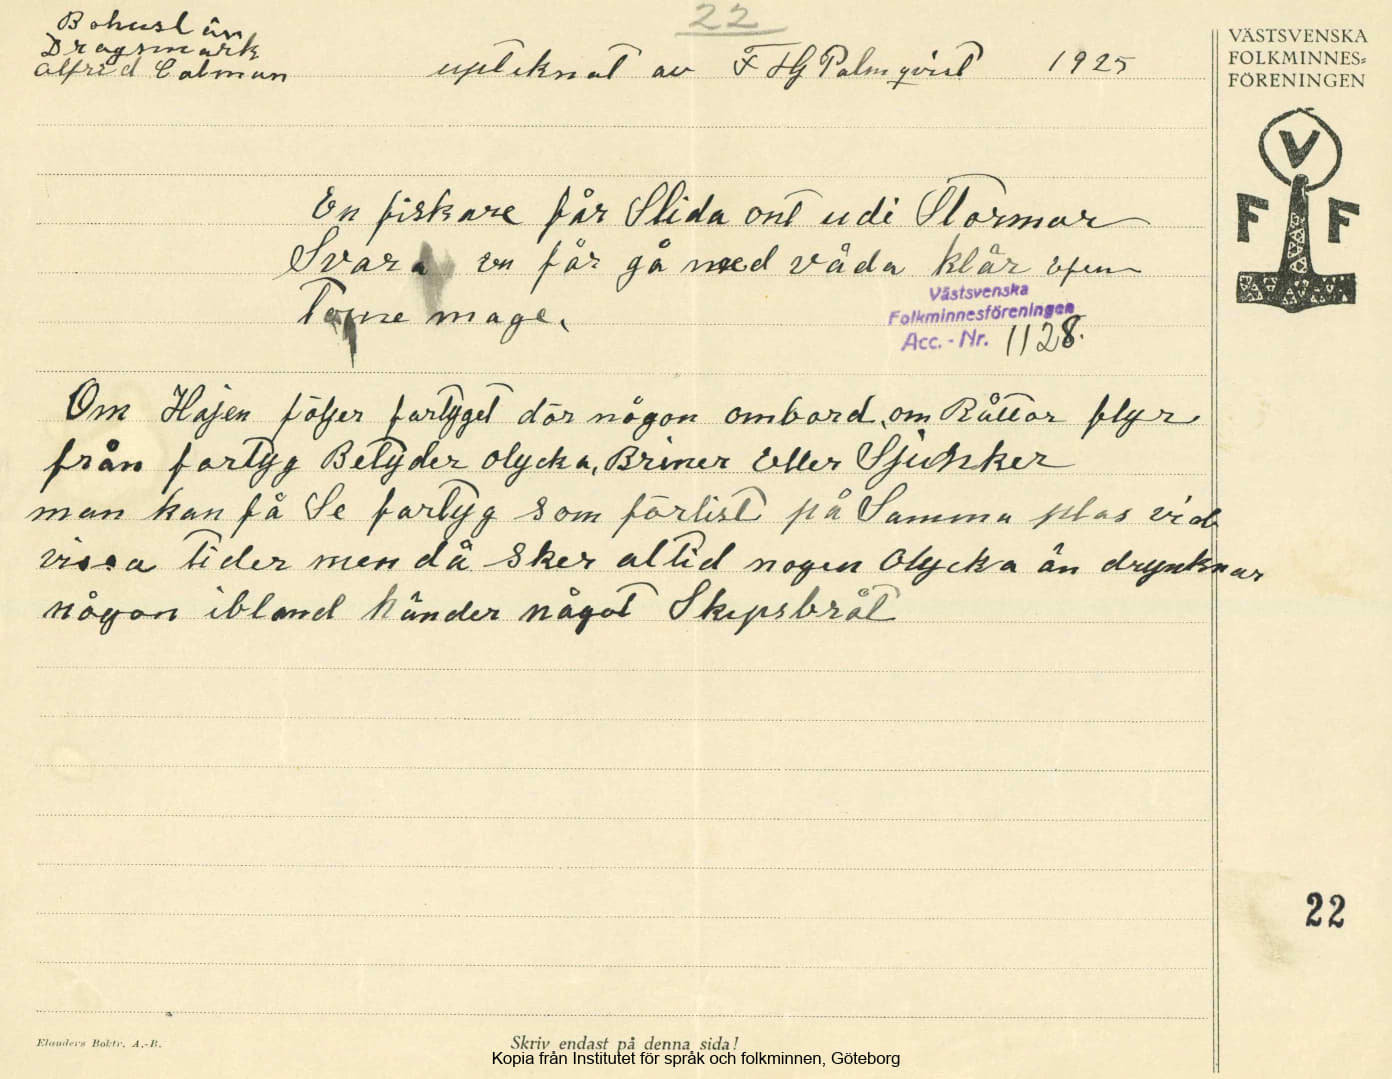 22
Bohuslän
Dragsmark
Alfred Calman
upteknat av F HG Palmqvist 1925
VÄSTSVENSKA
FOLKMINNES=
FÖRENINGEN
V
F F
En fiskare får Slida ont udi Stormar
Svara en får gå med våda klär
Tome mage.
Västsvenska
Folkminnesföreningen
Acc. - Nr. 1128.
Om Hajen följer fartyget dör någon ombord, om Råttor flyr
från fartyg Betyder olycka, Briner Eller Sjunker
man kan få Se fartyg som förlist på Samma plas vid
vissa tider men då sker altid nogen olycka än drynknar
någon ibland händer något Skepsbråt
22
Elanders Boktr. A.-B.
Skriv endast på denna sida!
Kopia från Institutet för språk och folkminnen, Göteborg